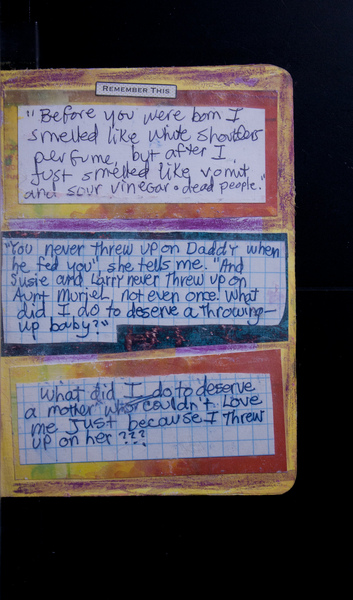 REMEMBER THIS
"Before you were born I
smelled like white shoulders
perfume, but after I
just smelled like vomit
and sour vinegar & dead people."
"You never threw up on Daddy when
he fed you", she tells me. "And
Susie and Larry never threw up on
Aunt Muriel, not even once. What
did I do to deserve a throwing-
up baby?"
What did I do to deserve
a mother who couldn't love
me just because I threw
up on her???